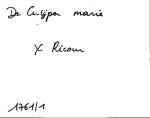 De Cuijper marie
X Ricour
1761/1